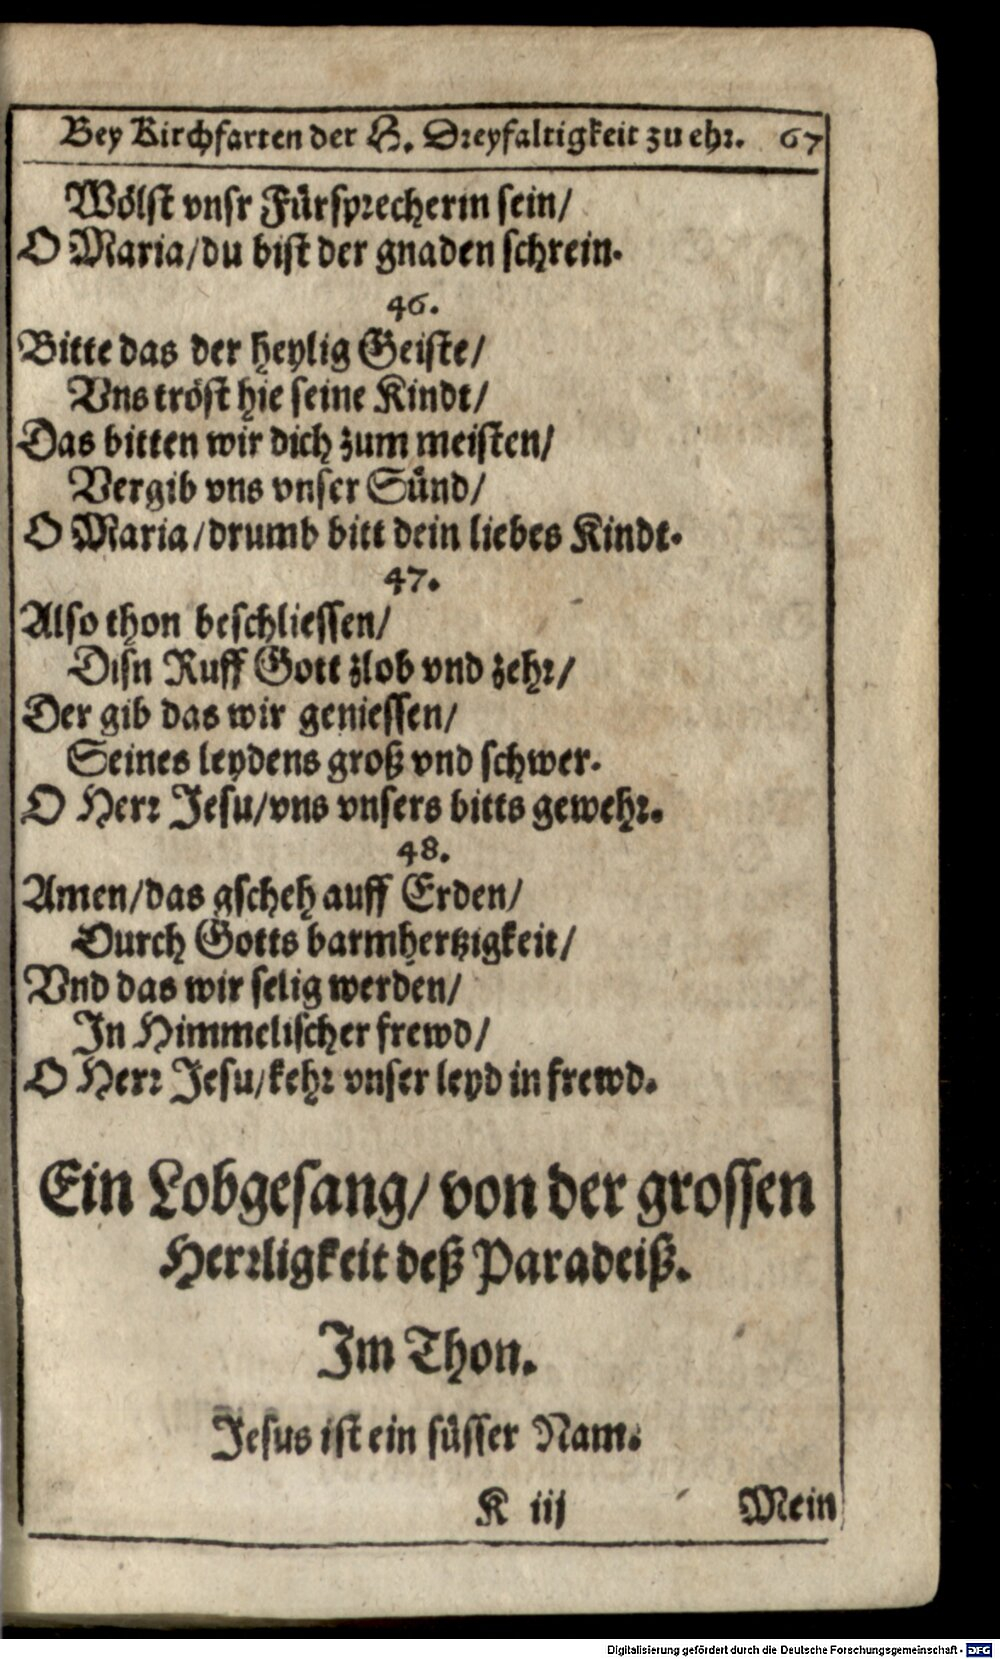 Bey Kirchfarten der H. Dreyfaltigkeit zu ehr. 67
Wölst vnsr Fürsprecherin sein/
O Maria/du bist der gnaden schrein.
46.
Bitte das der heylig Geiste/
Vns tröst hie seine Kindt/
Das bitten wir dich zum meisten/
Vergib vns vnser Sünd/
O Maria/drumb bitt dein liebes Kindt.
47.
Also thon beschliessen/
Disn Ruff Gott zlob vnd zehr/
Der gib das wir geniessen/
Seines leydens groß vnd schwer.
O Herr Jesu/vns vnsers bitts gewehr.
48.
Amen/das gscheh auff Erden/
Durch Gotts barmhertzigkeit/
Vnd das wir selig werden/
In Himmelischer frewd/
O Herr Jesu/kehr vnser leyd in frewd.
Ein Lobgesang/ von der grossen
Herrligkeit deß Paradeiß.
Im Thon.
Jesus ist ein süsser Nam.
K iij Mein
Digitalisierung gefördert durch die Deutsche Forschungsgemeinschaft - DFG